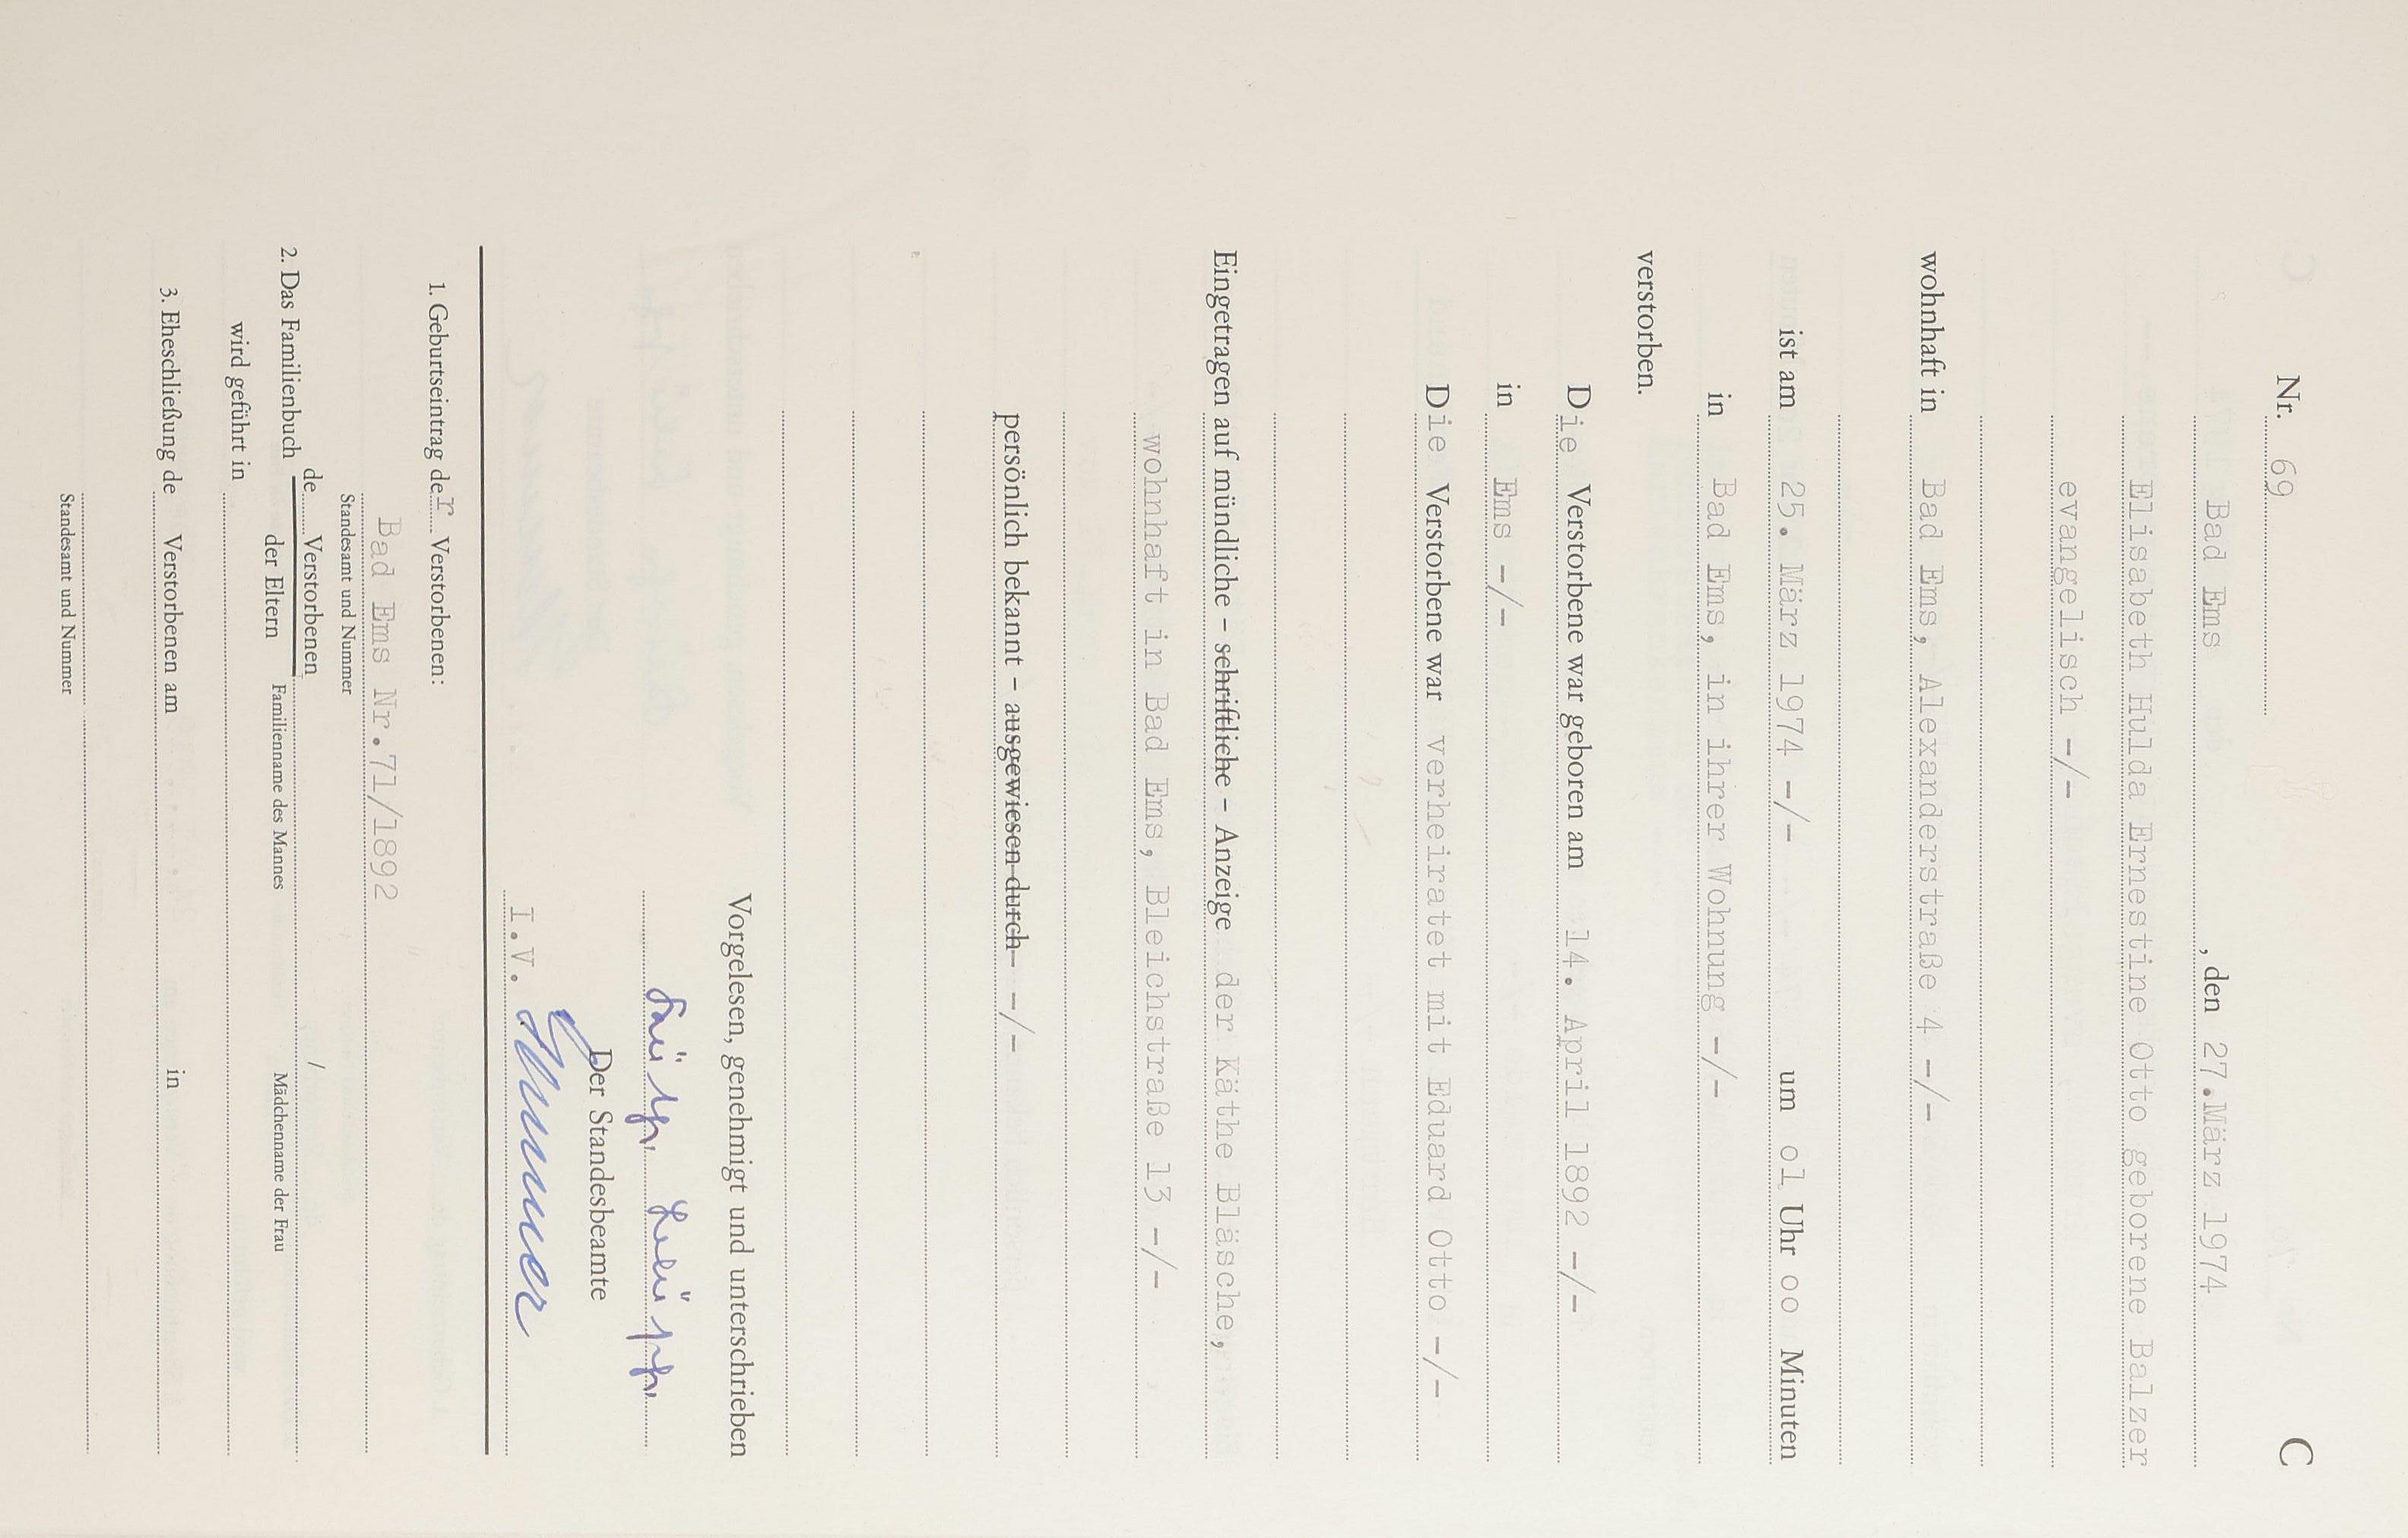 Nr. 69 C
Bad Ems, den 27.März 1974
Elisabeth Hulda Ernestine Otto geborene Balzer
evangelisch -/-
wohnhaft in Bad Ems, Alexanderstraße 4 -/-
ist am 25. März 1974 -/- um o1 Uhr oo Minuten
in Bad Ems, in ihrer Wohnung -/-
verstorben.
Die Verstorbene war geboren am 14. April 1892 -/-
in Ems -/-
Die Verstorbene war verheiratet mit Eduard Otto -/-
Eingetragen auf mündliche – schriftliche – Anzeige der Käthe Bläsche,
wohnhaft in Bad Ems, Bleichstraße 13 -/-
persönlich bekannt – ausgewiesen durch -/-
Vorgelesen, genehmigt und unterschrieben
Der Standesbeamte
I.V.
1. Geburtseintrag der Verstorbenen:
Bad Ems Nr.71/1892
Standesamt und Nummer
de Verstorbenen /
2. Das Familienbuch der Eltern Familienname des Mannes Mädchenname der Frau
wird geführt in
3. Eheschließung de Verstorbenen am in
Standesamt und Nummer